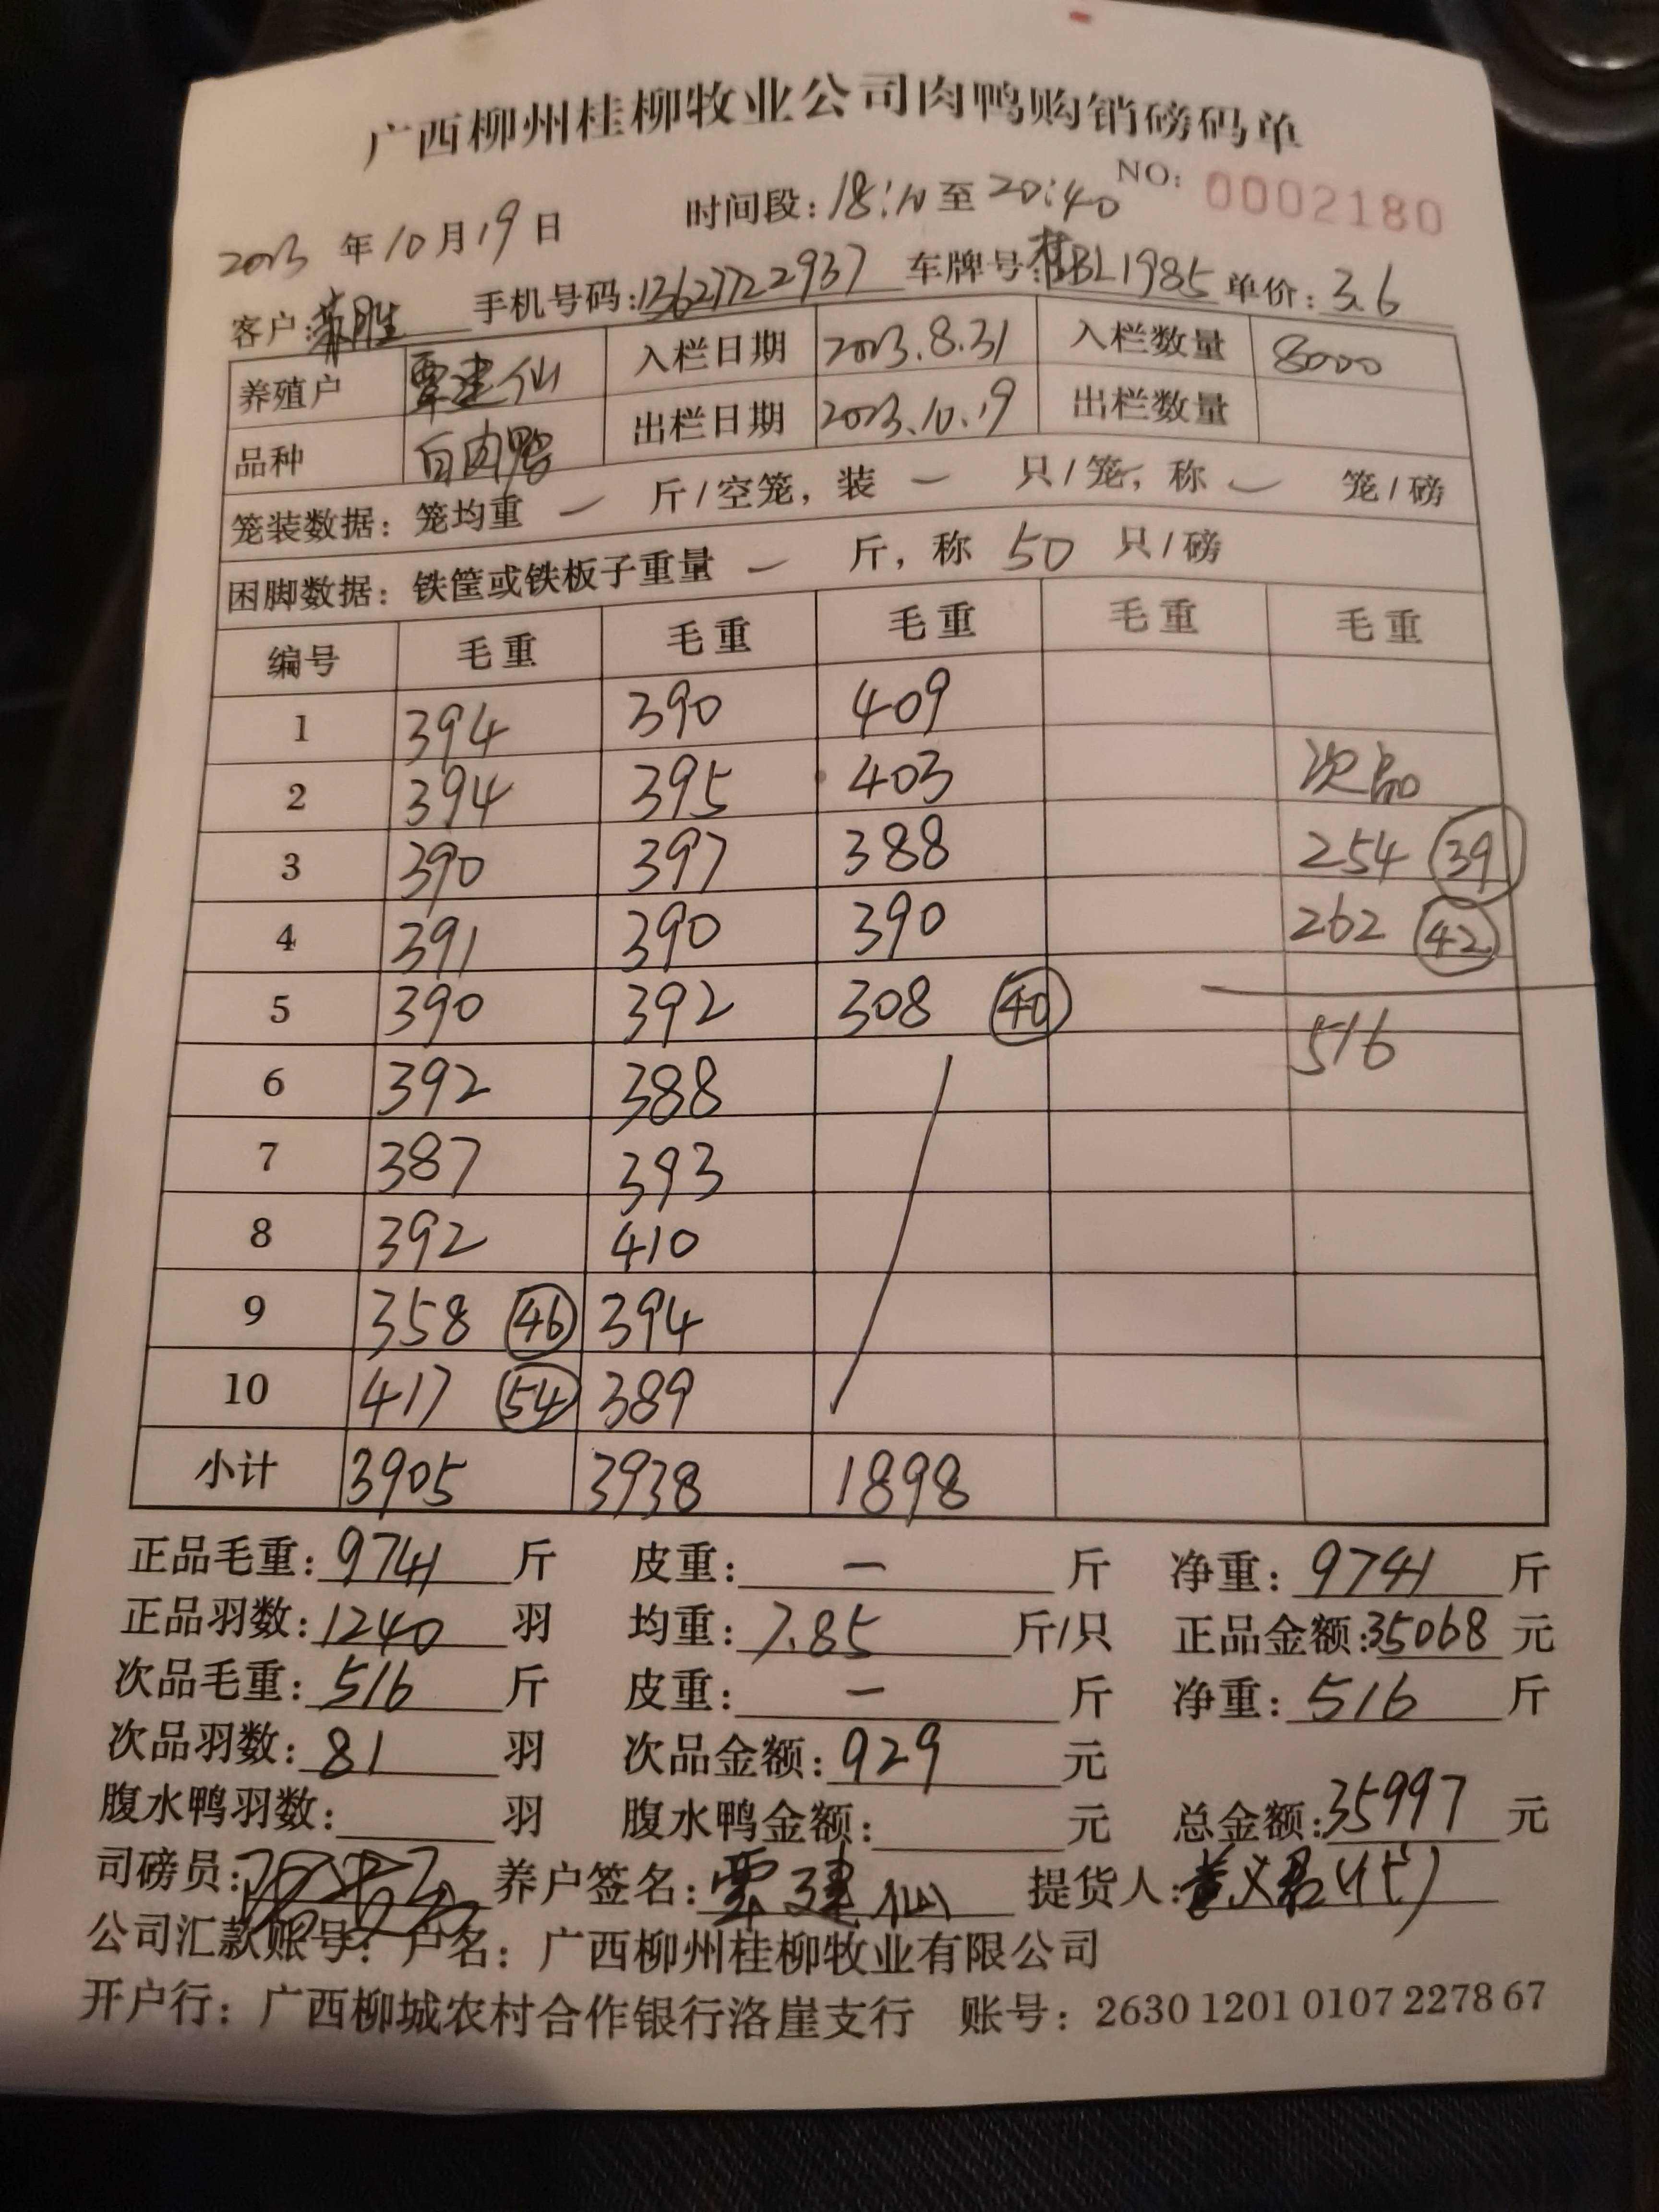 广西柳州桂柳牧业公司肉鸭购销磅码单
NO: 0002180
2023年10月19日 时间段:18:10至20:40
客户:胜 手机号码:13627722937 车牌号:桂BL1985 单价:3.6
养殖户 覃建仙 入栏日期 2023.8.31 入栏数量 8000
品种 白肉鸭 出栏日期 2023.10.19 出栏数量
笼装数据: 笼均重 — 斤/空笼, 装 — 只/笼, 称 — 笼/磅
困脚数据: 铁筐或铁板子重量 — 斤, 称 50 只/磅
编号 毛重 毛重 毛重 毛重 毛重
1 394 390 409
2 394 395 403 次品
3 390 397 388 254 39
4 391 390 390 262 42
5 390 392 308 40 516
6 392 388
7 387 393
8 392 410
9 358 46 394
10 417 54 389
小计 3905 3938 1898
正品毛重: 9741 斤 皮重: — 斤 净重: 9741 斤
正品羽数: 1240 羽 均重: 7.85 斤/只 正品金额: 35068 元
次品毛重: 516 斤 皮重: — 斤 净重: 516 斤
次品羽数: 81 羽 次品金额: 929 元
腹水鸭羽数: 羽 腹水鸭金额: 元 总金额: 35997 元
司磅员: 养户签名: 覃建仙 提货人: 义君(代)
公司汇款账号: 户名: 广西柳州桂柳牧业有限公司
开户行: 广西柳城农村合作银行洛崖支行 账号: 2630 1201 0107 2278 67